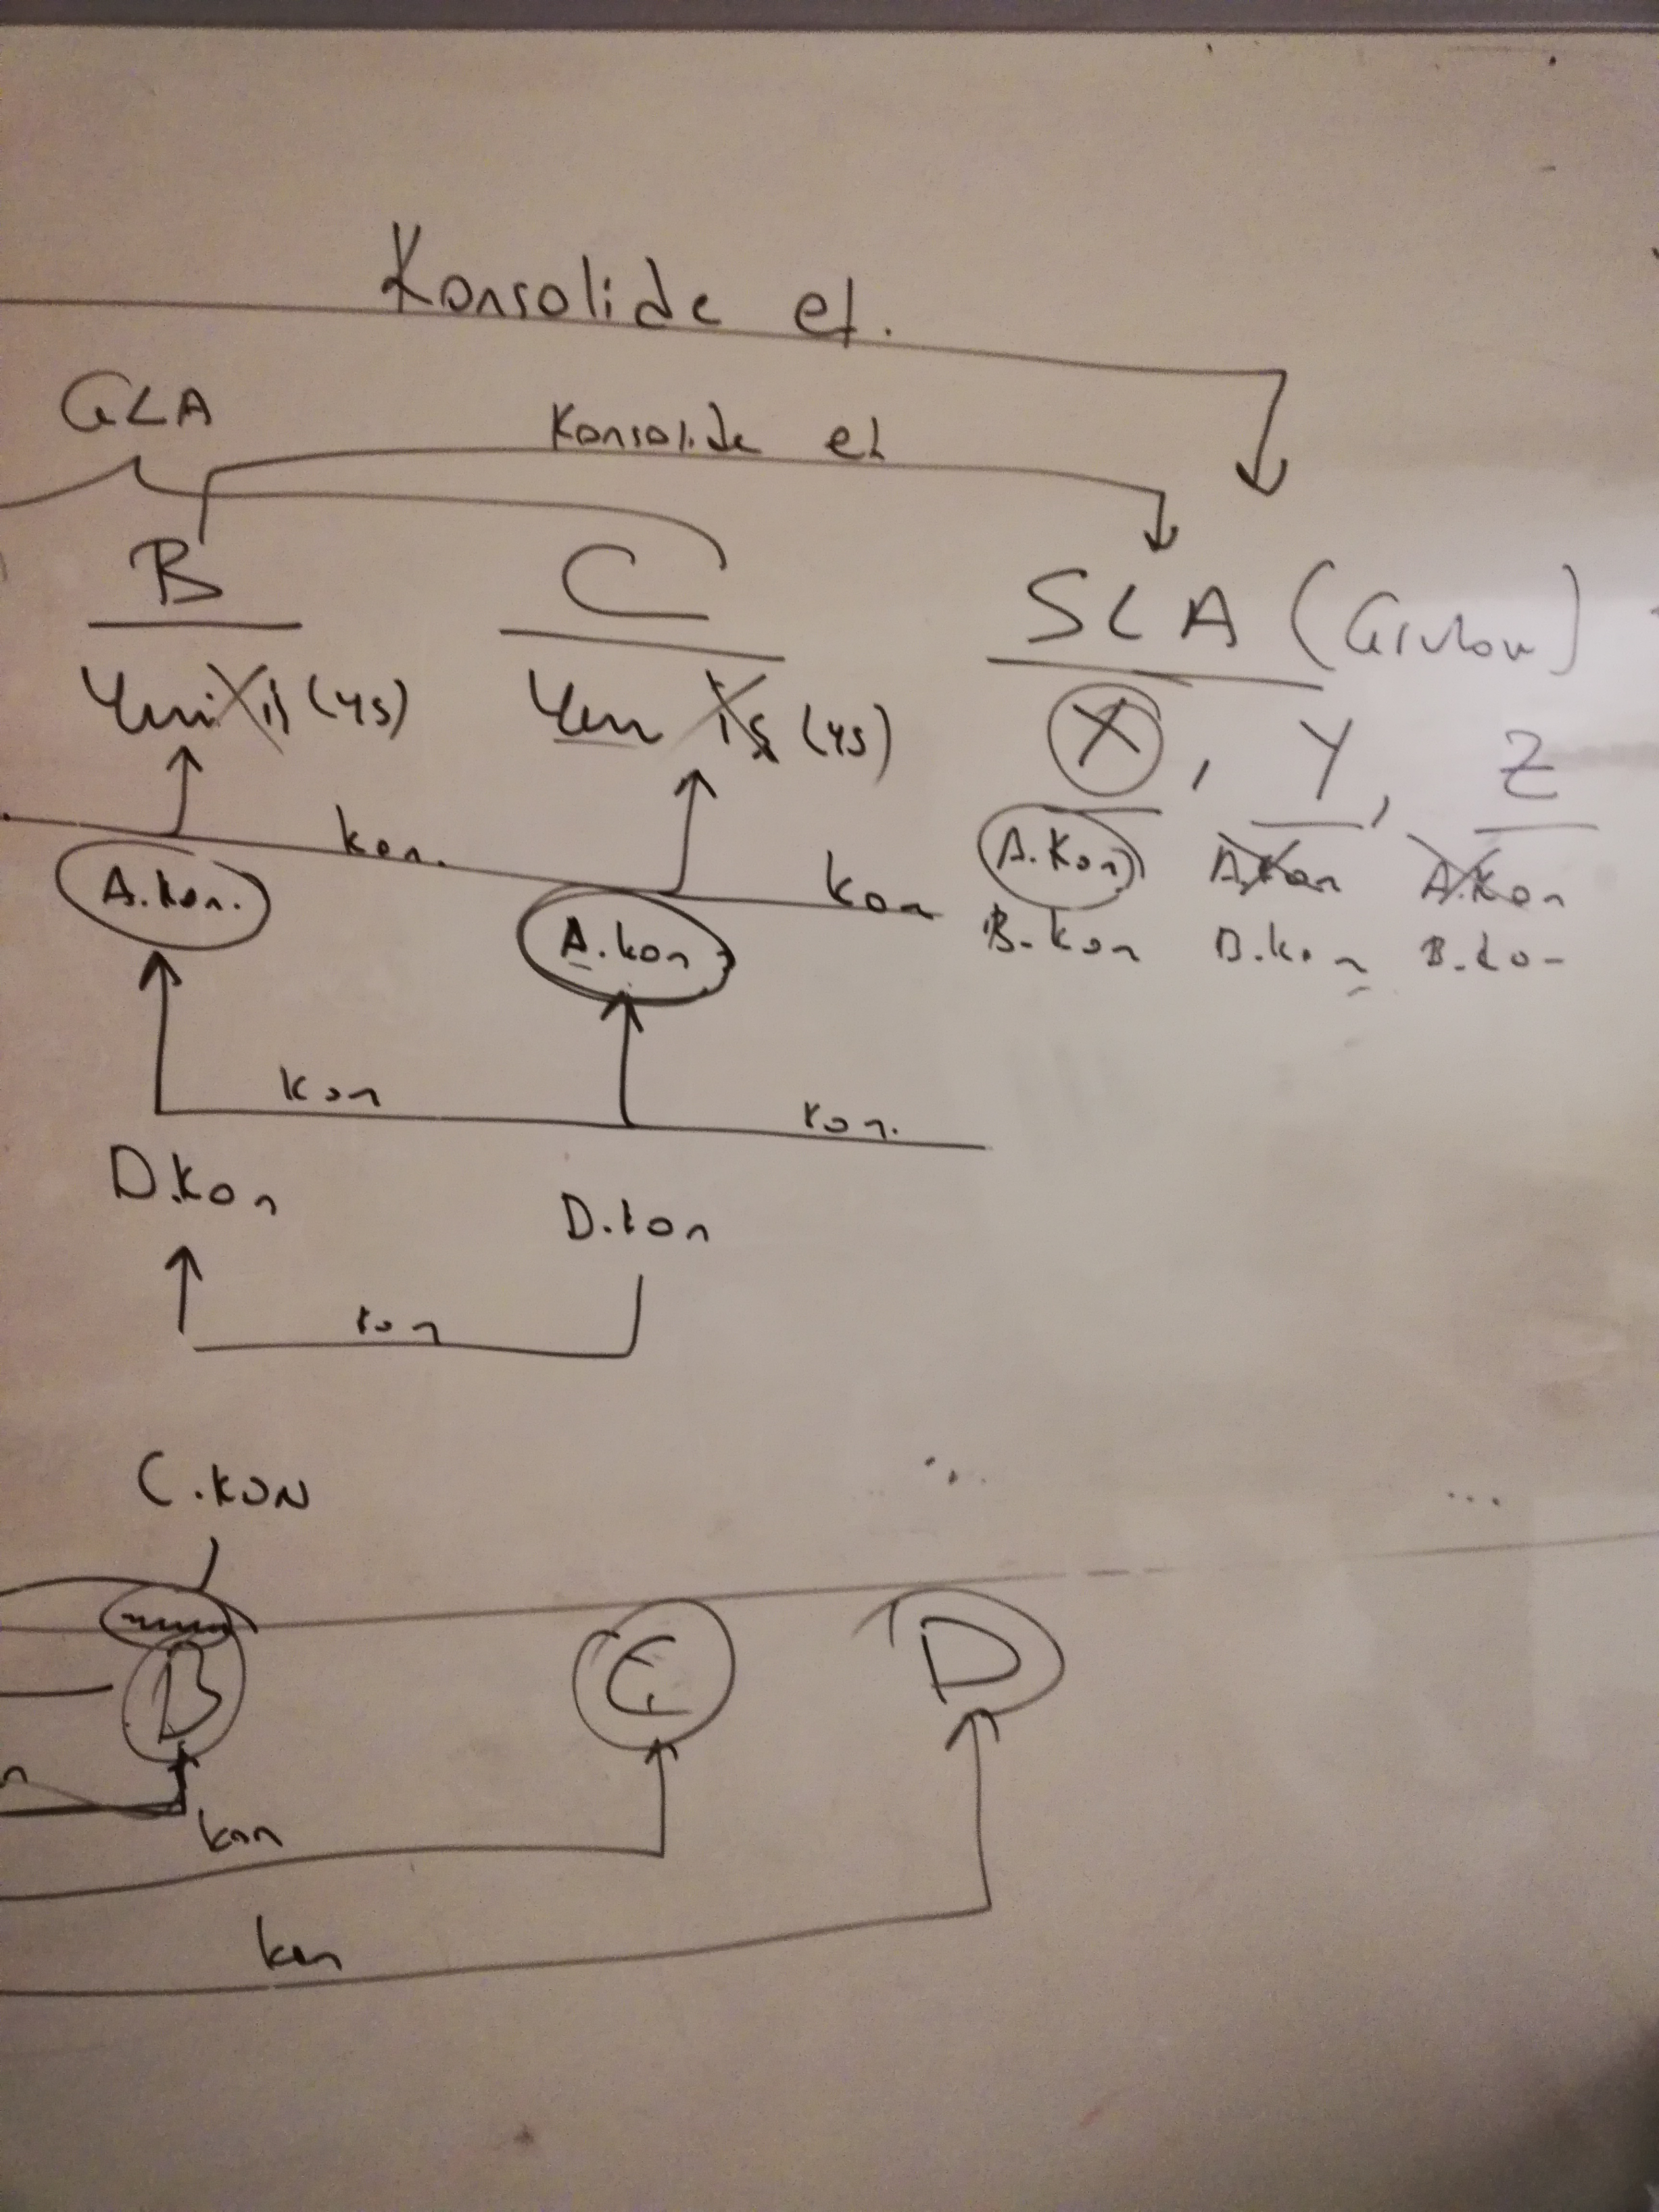 Konsolide et.
GLA
Konsolide et
B C SLA
Yeni iş (YS) Yeni iş (YS) X, Y, Z
kon. kon A.Kon A.Kon A.Kon
A.kon. A.kon B.kon B.kon B.kon
kon kon.
D.kon D.kon
kon
C.KON
B C D
kon
kon